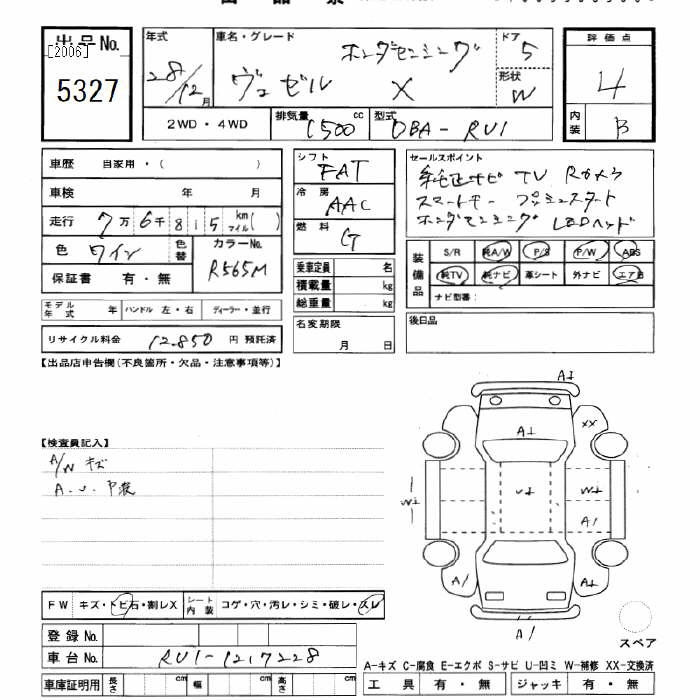 出品票
出品No. [2006] 5327
年式 28/12月
車名・グレード ホンダセンシング
ヴェゼル X
ドア 5
形状 W
評価点 4
内装 B
2WD・4WD
排気量 1500 cc
型式 DBA-RU1
車歴 自家用・( )
車検 年 月
走行 7万6千815 km マイル( )
色 ワイン
色替
カラーNo. R565M
保証書 有・無
モデル年式 年
ハンドル 左・右
ディーラー・並行
リサイクル料金 12,850 円 預託済
シフト FAT
冷房 AAC
燃料 G
乗車定員 名
積載量 kg
総重量 kg
名変期限
月 日
セールスポイント
純正ナビ TV Rカメラ
スマートキー プッシュスタート
ホンダセンシング LEDヘッド
装備品
S/R 純A/W P/S P/W ABS
純TV 純ナビ 革シート 外ナビ エアB
ナビ型番:
後日品
【出品店申告欄(不良箇所・欠品・注意事項等)】
【検査員記入】
A/W キズ
FW キズ・トビ石・割レX
シート内装 コゲ・穴・汚レ・シミ・破レ・スレ
登録No.
車台No. RU1-1217228
車庫証明用 長さ cm 幅 cm 高さ cm
A↓
A↓
XX
W↓
U↓
W↓
A/
A/
A↓
A/
スペア
A-キズ C-腐食 E-エクボ S-サビ U-凹ミ W-補修 XX-交換済
工具 有・無
ジャッキ 有・無